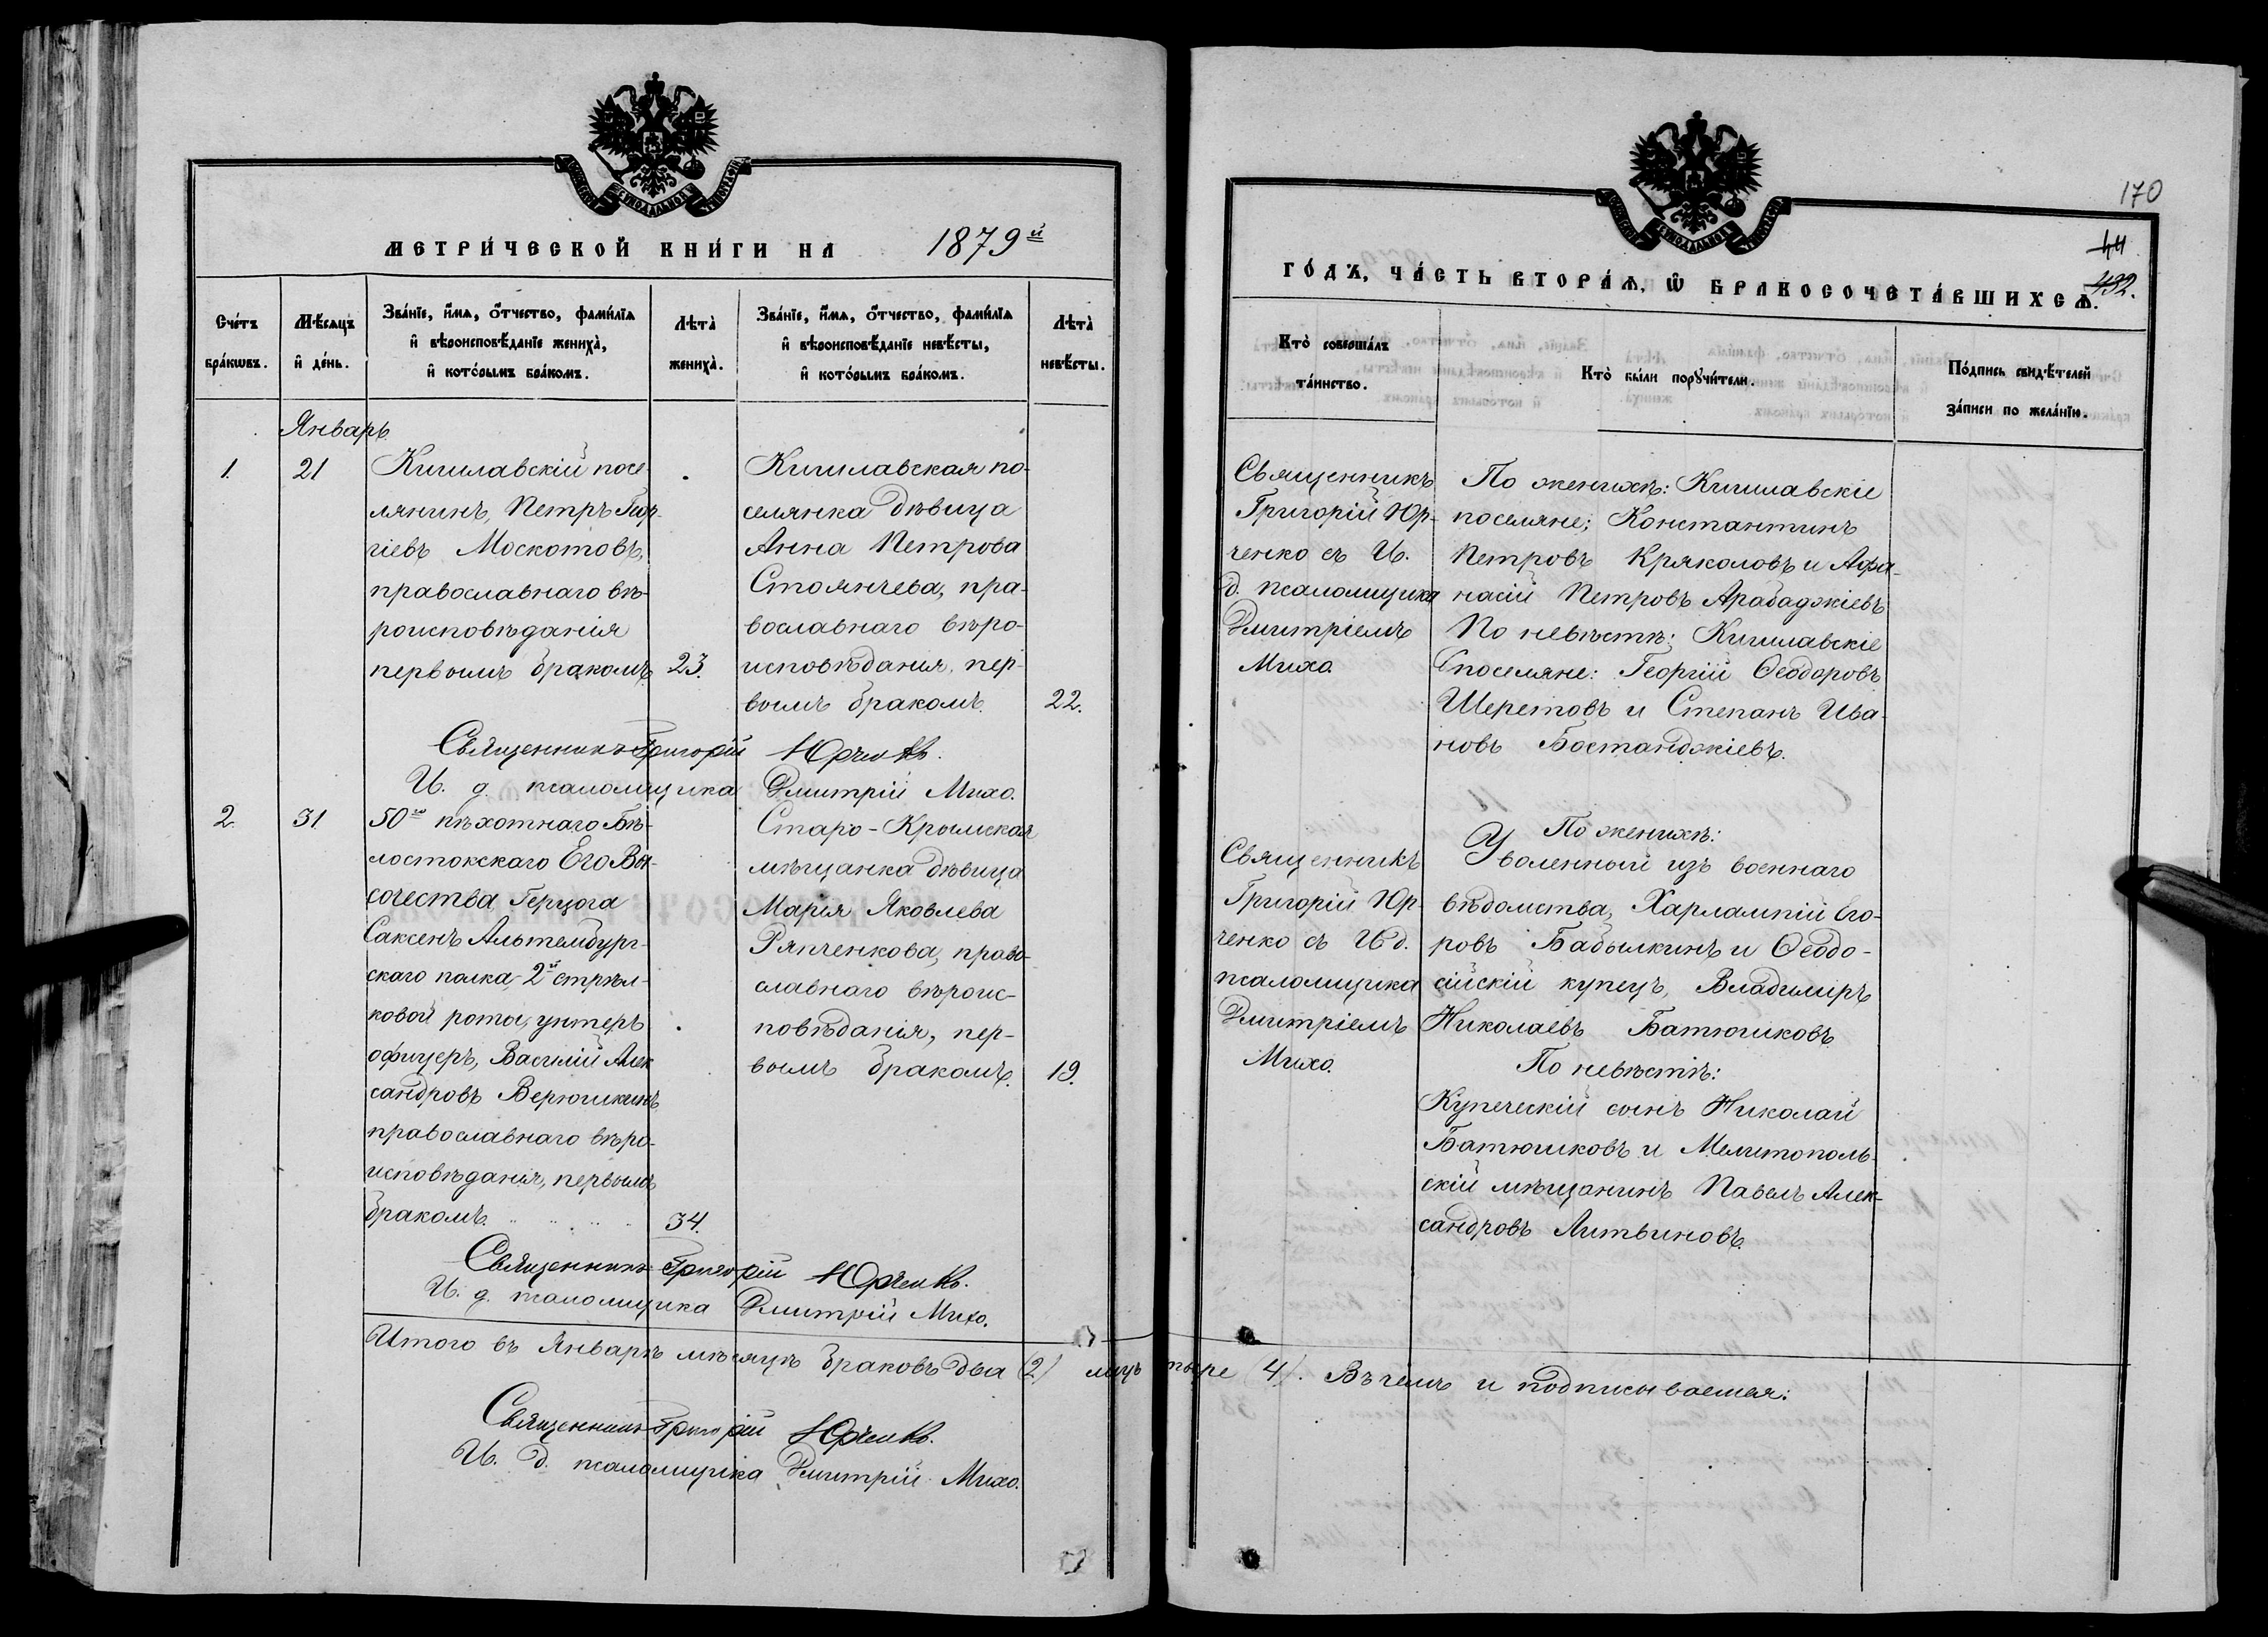 МЕТРИ́ЧЕСКОЙ КНИ́ГИ НА 1879й
Счётъ бра́кωвъ.
Мѣ́сѧцъ и҆ де́нь.
Зва́нїе, и҆́мѧ, ѻ҆́тчество, фами́лїѧ
и҆ вѣроисповѣ́данїе жениха̀,
и҆ кото́рымъ бра́комъ.
Лѣта̀ жениха̀.
Зва́нїе, и҆́мѧ, ѻ҆́тчество, фами́лїѧ
и҆ вѣроисповѣ́данїе невѣ́сты,
и҆ кото́рымъ бра́комъ.
Лѣта̀ невѣ́сты.
Январь
1.
21
Кишлавскій посе-
лянинъ, Петръ Геор-
гіевъ Москотовъ,
православнаго вѣ-
роисповѣданія
первымъ бракомъ
23.
Кишлавская по-
селянка дѣвица
Анна Петрова
Стоянчева, пра-
вославнаго вѣро-
исповѣданія, пер-
вымъ бракомъ.
22.
Священникъ Григорій Юрченко.
И. д. псаломщика Дмитрій Михо.
2.
31
50го пѣхотнаго Бѣ-
лостокскаго Его Вы-
сочества Герцога
Саксенъ Альтембург-
скаго полка, 2й стрѣл-
ковой роты, унтеръ
офицеръ, Василій Алек
сандровъ Верюшкинъ
православнаго вѣро-
исповѣданія, первымъ
бракомъ.
34.
Старо-Крымская
мѣщанка дѣвица
Марія Яковлева
Ряпченкова, право-
славнаго вѣроис-
повѣданія, пер-
вымъ бракомъ.
19.
Священникъ Григорій Юрченко.
И. д. псаломщика Дмитрій Михо.
Итого въ Январѣ мѣсяцѣ браковъ два (2) лицъ тыре (4). Въ чемъ и подписываемся:
Священникъ Григорій Юрченко.
И. д. псаломщика Дмитрій Михо.
170
432.
ГО́ДЪ, ЧА́СТЬ ВТОРА́Ѧ, Ѡ҆ БРАКОСОЧЕТА́ВШИХСѦ.
Кто̀ соверша́лъ
та́инство.
Кто̀ бы́ли порꙋчи́тели.
По́дпись свидѣ́телей
за́писи по жела́нїю.
Священникъ
Григорій Юр-
ченко съ И.
д. псаломщика
Дмитріемъ
Михо.
По женихѣ: Кишлавскіе
поселяне; Константинъ
Петровъ Кряколовъ и Афа-
насій Петровъ Арабаджіевъ
По невѣстѣ: Кишлавскіе
поселяне: Георгій Ѳеодоровъ
Шеретовъ и Степанъ Ива-
новъ Бостанджіевъ.
Священникъ
Григорій Юр-
ченко съ И д.
псаломщика
Дмитріемъ
Михо.
По женихѣ:
Уволенный изъ военнаго
вѣдомства, Харлампій Его-
ровъ Бабылкинъ и Ѳеодо-
сійскій купецъ, Владимиръ
Николаевъ Батюшковъ
По невѣстѣ:
Купеческій сынъ Николай
Батюшковъ и Мелитополь-
скій мѣщанинъ Павелъ Алек-
сандровъ Литвиновъ.